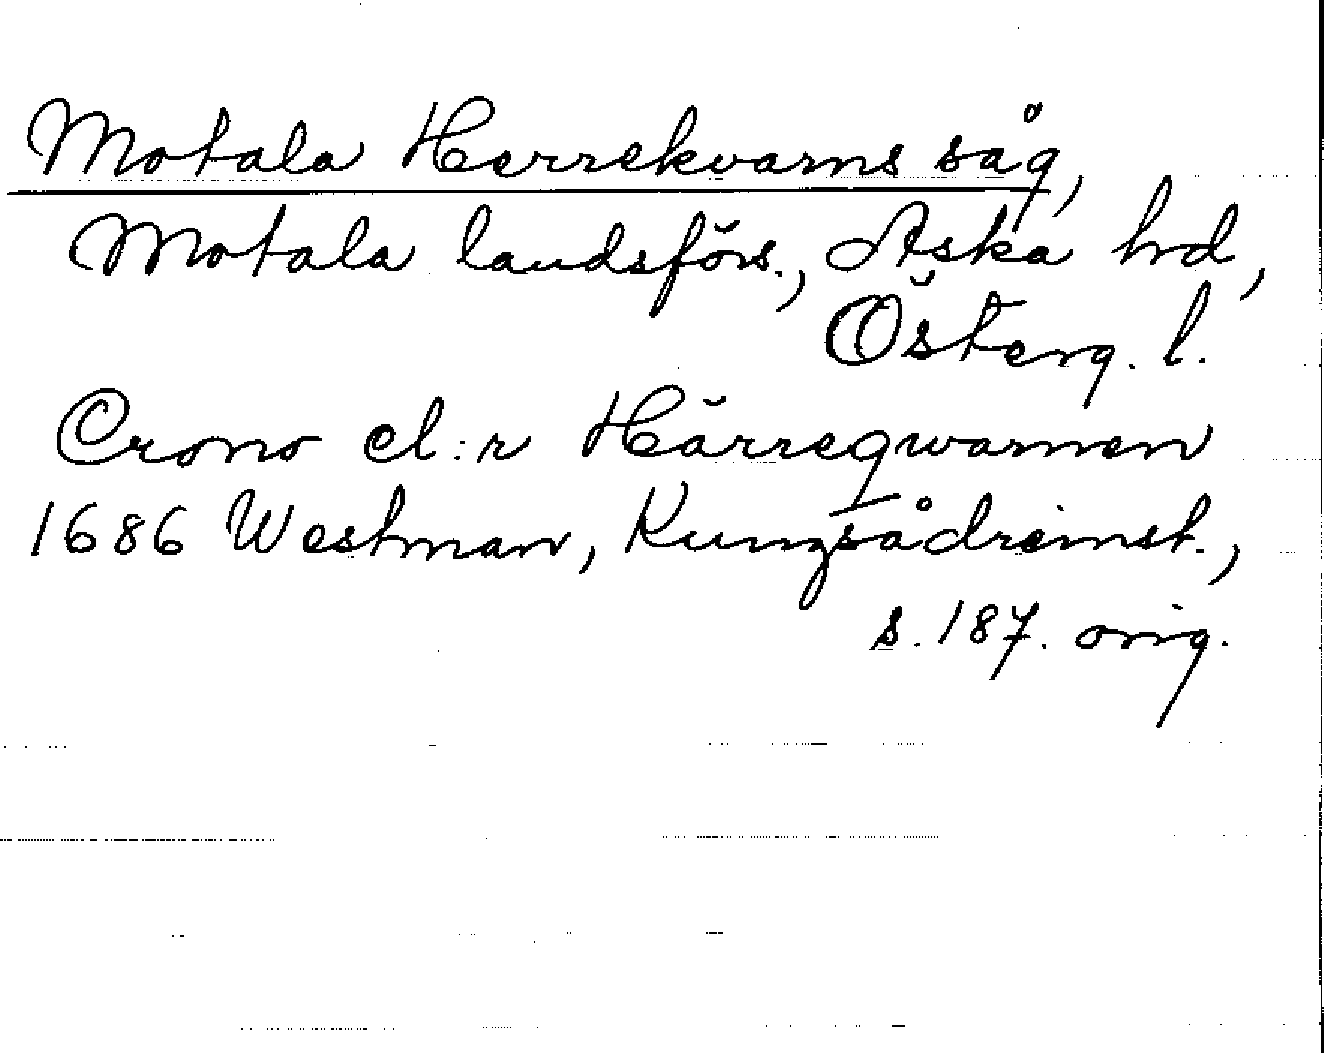 Motala Herrekvarns såg,
Motala landsförs., Aska hd,
Österg. l.
Crono el:r Härreqwarnen
1686 Westman, Kungsådreinst.,
s. 187. orig.